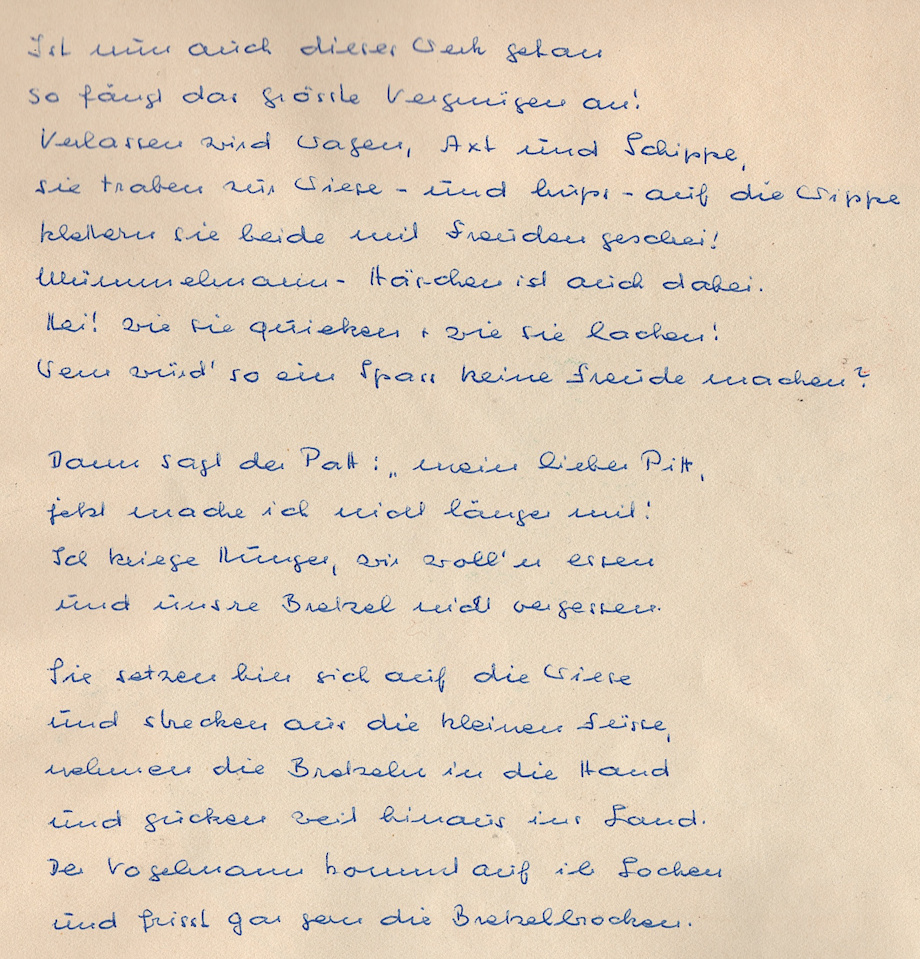 Ist nun auch dieses Werk getan
so fängt das grösste Vergnügen an!
Verlassen wird Wagen, Axt und Schippe,
sie traben zur Wiese - und hups - auf die Wippe
klettern sie beide mit Freudengeschei!
Mümmelmann - Häschen ist auch dabei.
Hei! wie sie quieken + wie sie lachen!
Wem würd' so ein Spass keine Freude machen?
Dann sagt der Patt: „mein lieber Pitt,
jetzt mache ich nicht länger mit!
Ich kriege Hunger, wir woll'n essen
und unsre Bretzel nicht vergessen.
Sie setzen hin sich auf die Wiese
und strecken aus die kleinen Füsse,
nehmen die Bretzeln in die Hand
und gucken weit hinaus ins Land.
Der Vogelmann kommt auf ihr Locken
und frisst gar gern die Bretzelbrocken.